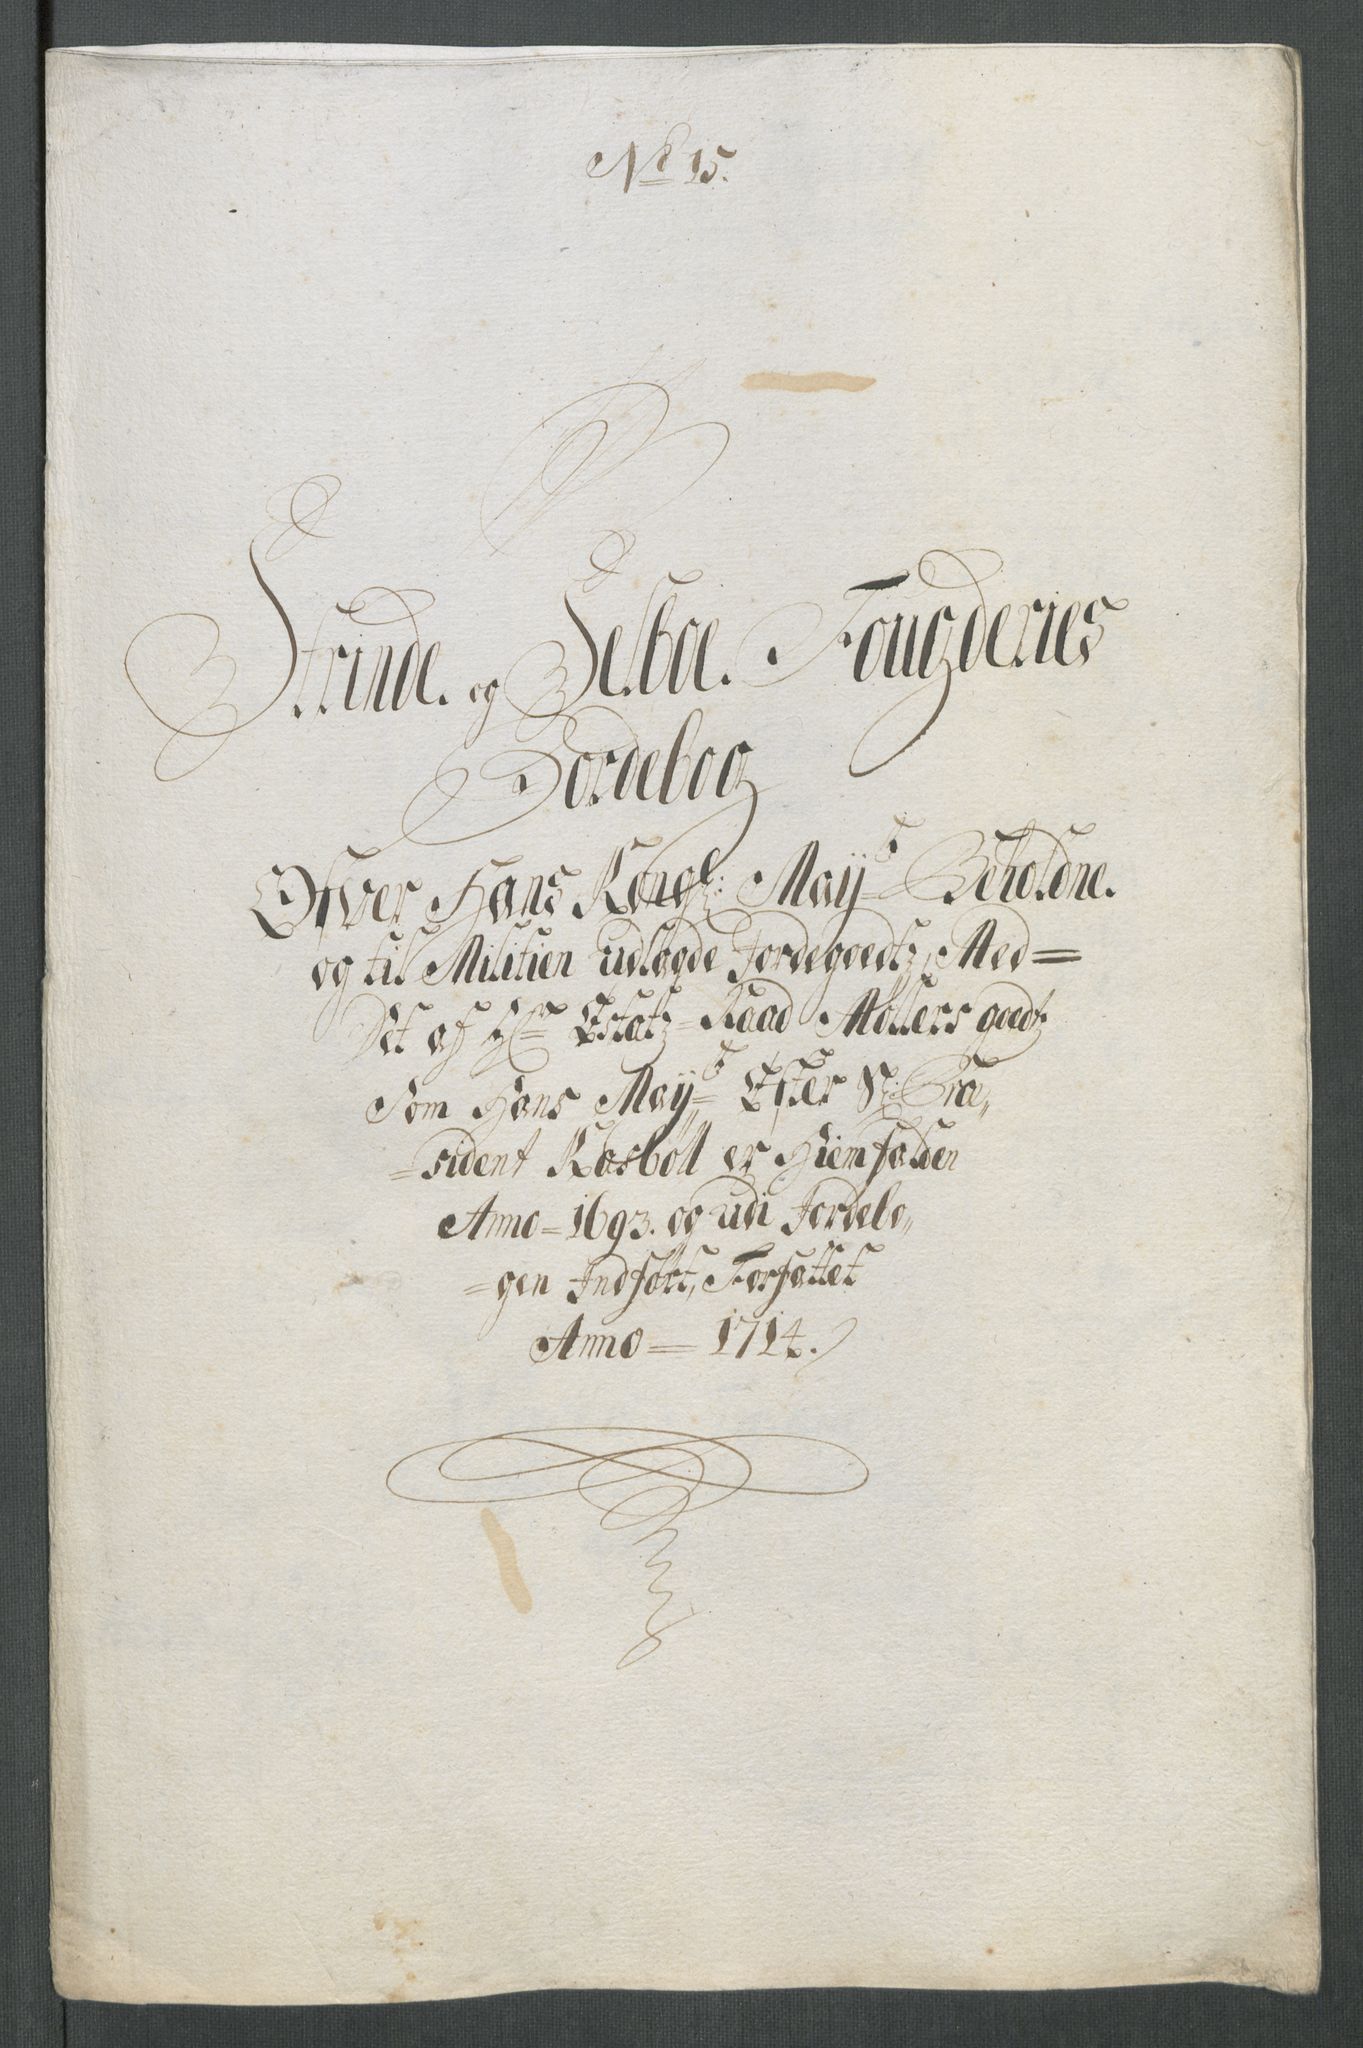 No 15.
Strinde og Selboe Fougderies
Jordebog
Ofver Hans Kongl: Mayts Beholdne
og til Militien udlagde Jordegoedtz, Med=
Det af Hr Estatz-Raad Møllers goedtz
Som Hans Mayts Efter Sl: Præ„
=sident Kasbøll er Hiemfalden
Anno=1693. og udi Jordebo„
=gen Indført, Forfattet
Anno= 1714.